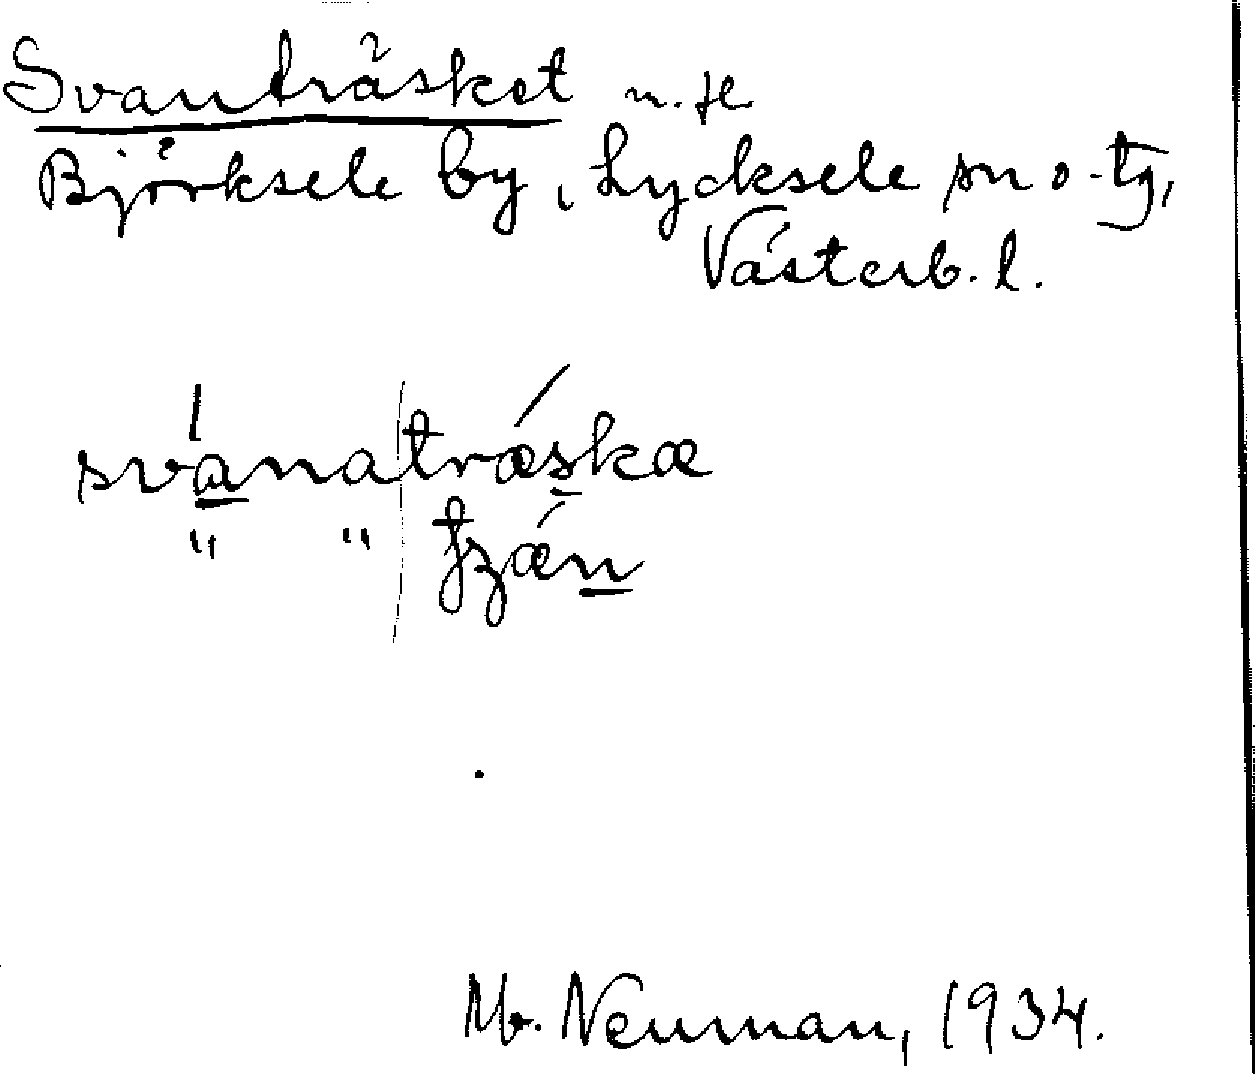 Svanträsket m. fl.
Björksele by, Lycksele sn o. tg,
Västerb. l.
svánatrǽskæ
" " tzǽn
Mb. Neuman, 1934.